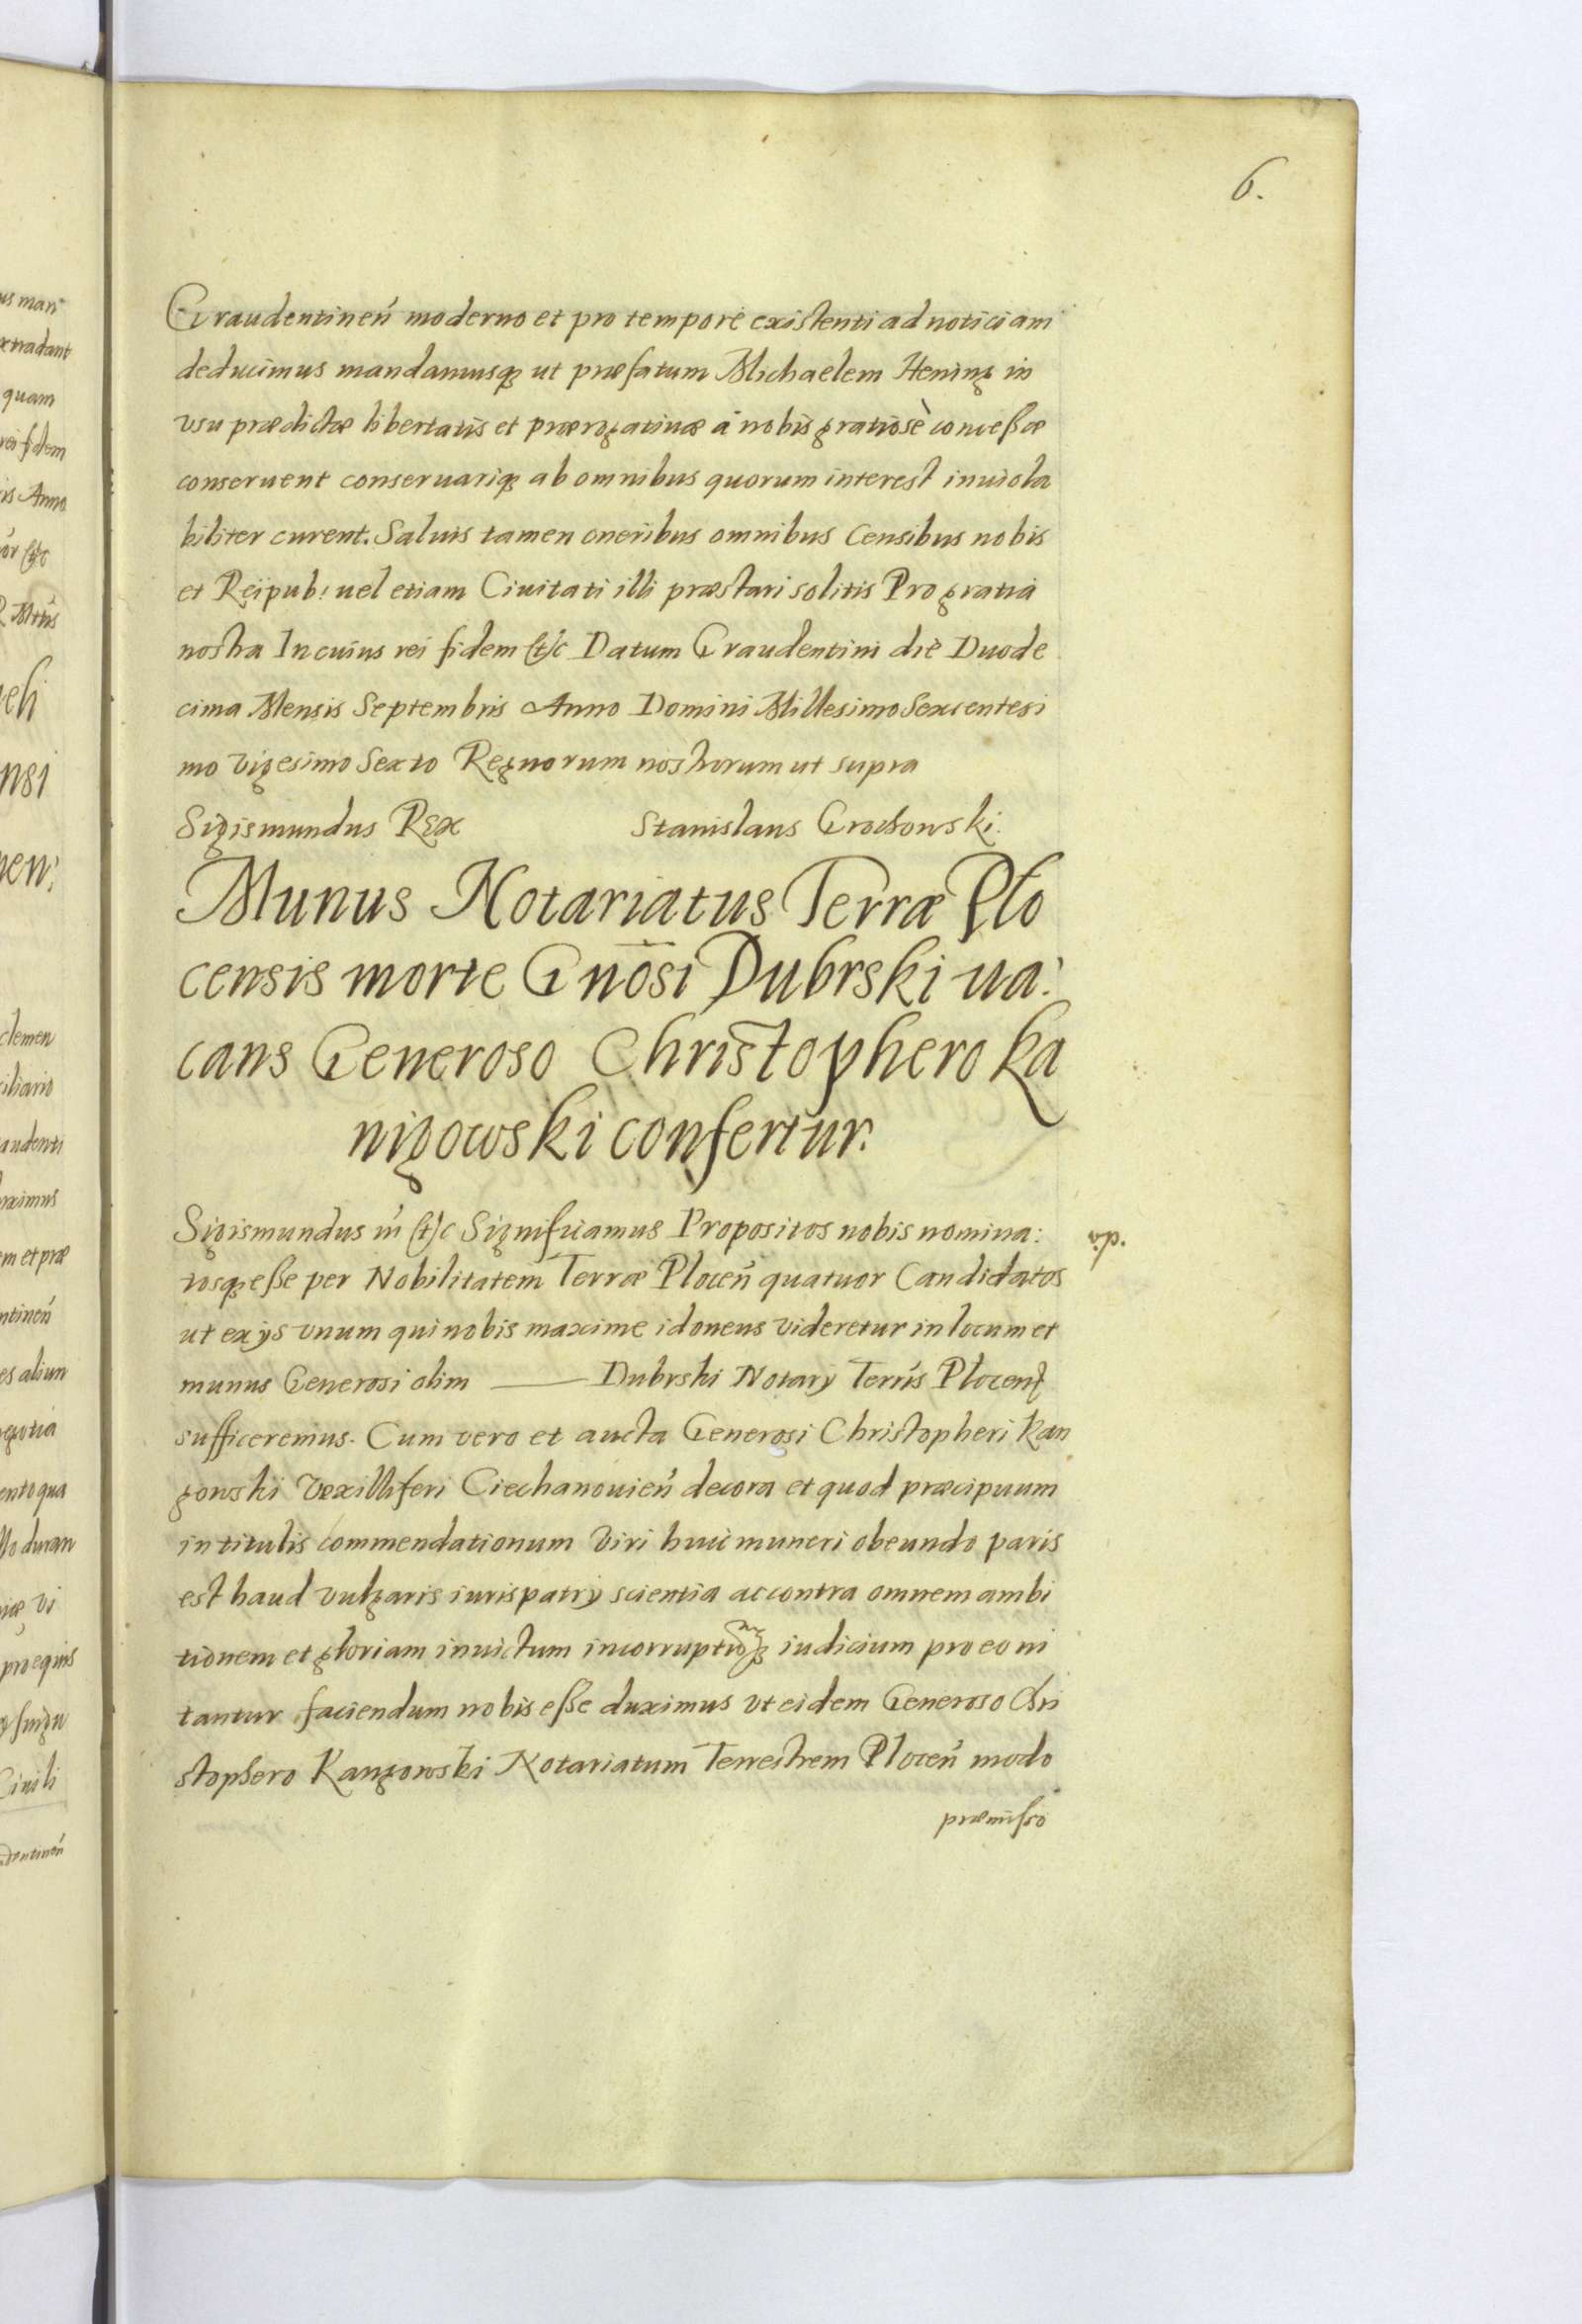 6.
Graudentineñ moderno et pro tempore existenti ad noticiam
deducimus mandamusq; ut præfatum Michaelem Hening in
vsu prædictæ libertatis et prærogatiuæ à nobis gratiosè concessæ
conseruent conseruariq; ab omnibus quorum interest inuiola
biliter curent. Saluis tamen oneribus omnibus Censibus nobis
et Reipub: uel etiam Ciuitati illi præstari solitis Pro gratia
nostra In cuius rei fidem etc Datum Graudentini die Duode
cima Mensis Septembris Anno Domini Millesimo Sexcentesi
mo vigesimo Sexto Regnorum nostrorum ut supra
Sigismundus Rex Stanislaus Grochowski.
Munus Notariatus Terræ Plo
censis morte Gnosi Dubrski ua:
cans Generoso Christophero Ka
nigowski confertur.
Sigismundus etc Significamus Propositos nobis nomina:
tosq; esse per Nobilitatem Terræ Ploceñ quatuor Candidatos
ut ex ijs vnum qui nobis maxime idoneus videretur in locum et
munus Generosi olim —— Dubrski Notarÿ Terrīs Plocen̄
sufficeremus. Cum vero et aucta Generosi Christopheri Kan
gowski Vexilliferi Ciechanouieñ decora et quod præcipuum
in titulis commendationum Viri huic muneri obeundo paris
est haud vulgaris iuris patrÿ scientia ac contra omnem ambi
tionem et gloriam inuictum incorruptumq; iudicium pro eo ni
tantur faciendum nobis esse duximus vt eidem Generoso Chri
stophero Kangowski Notariatum Terrestrem Ploceñ modo
præmisso